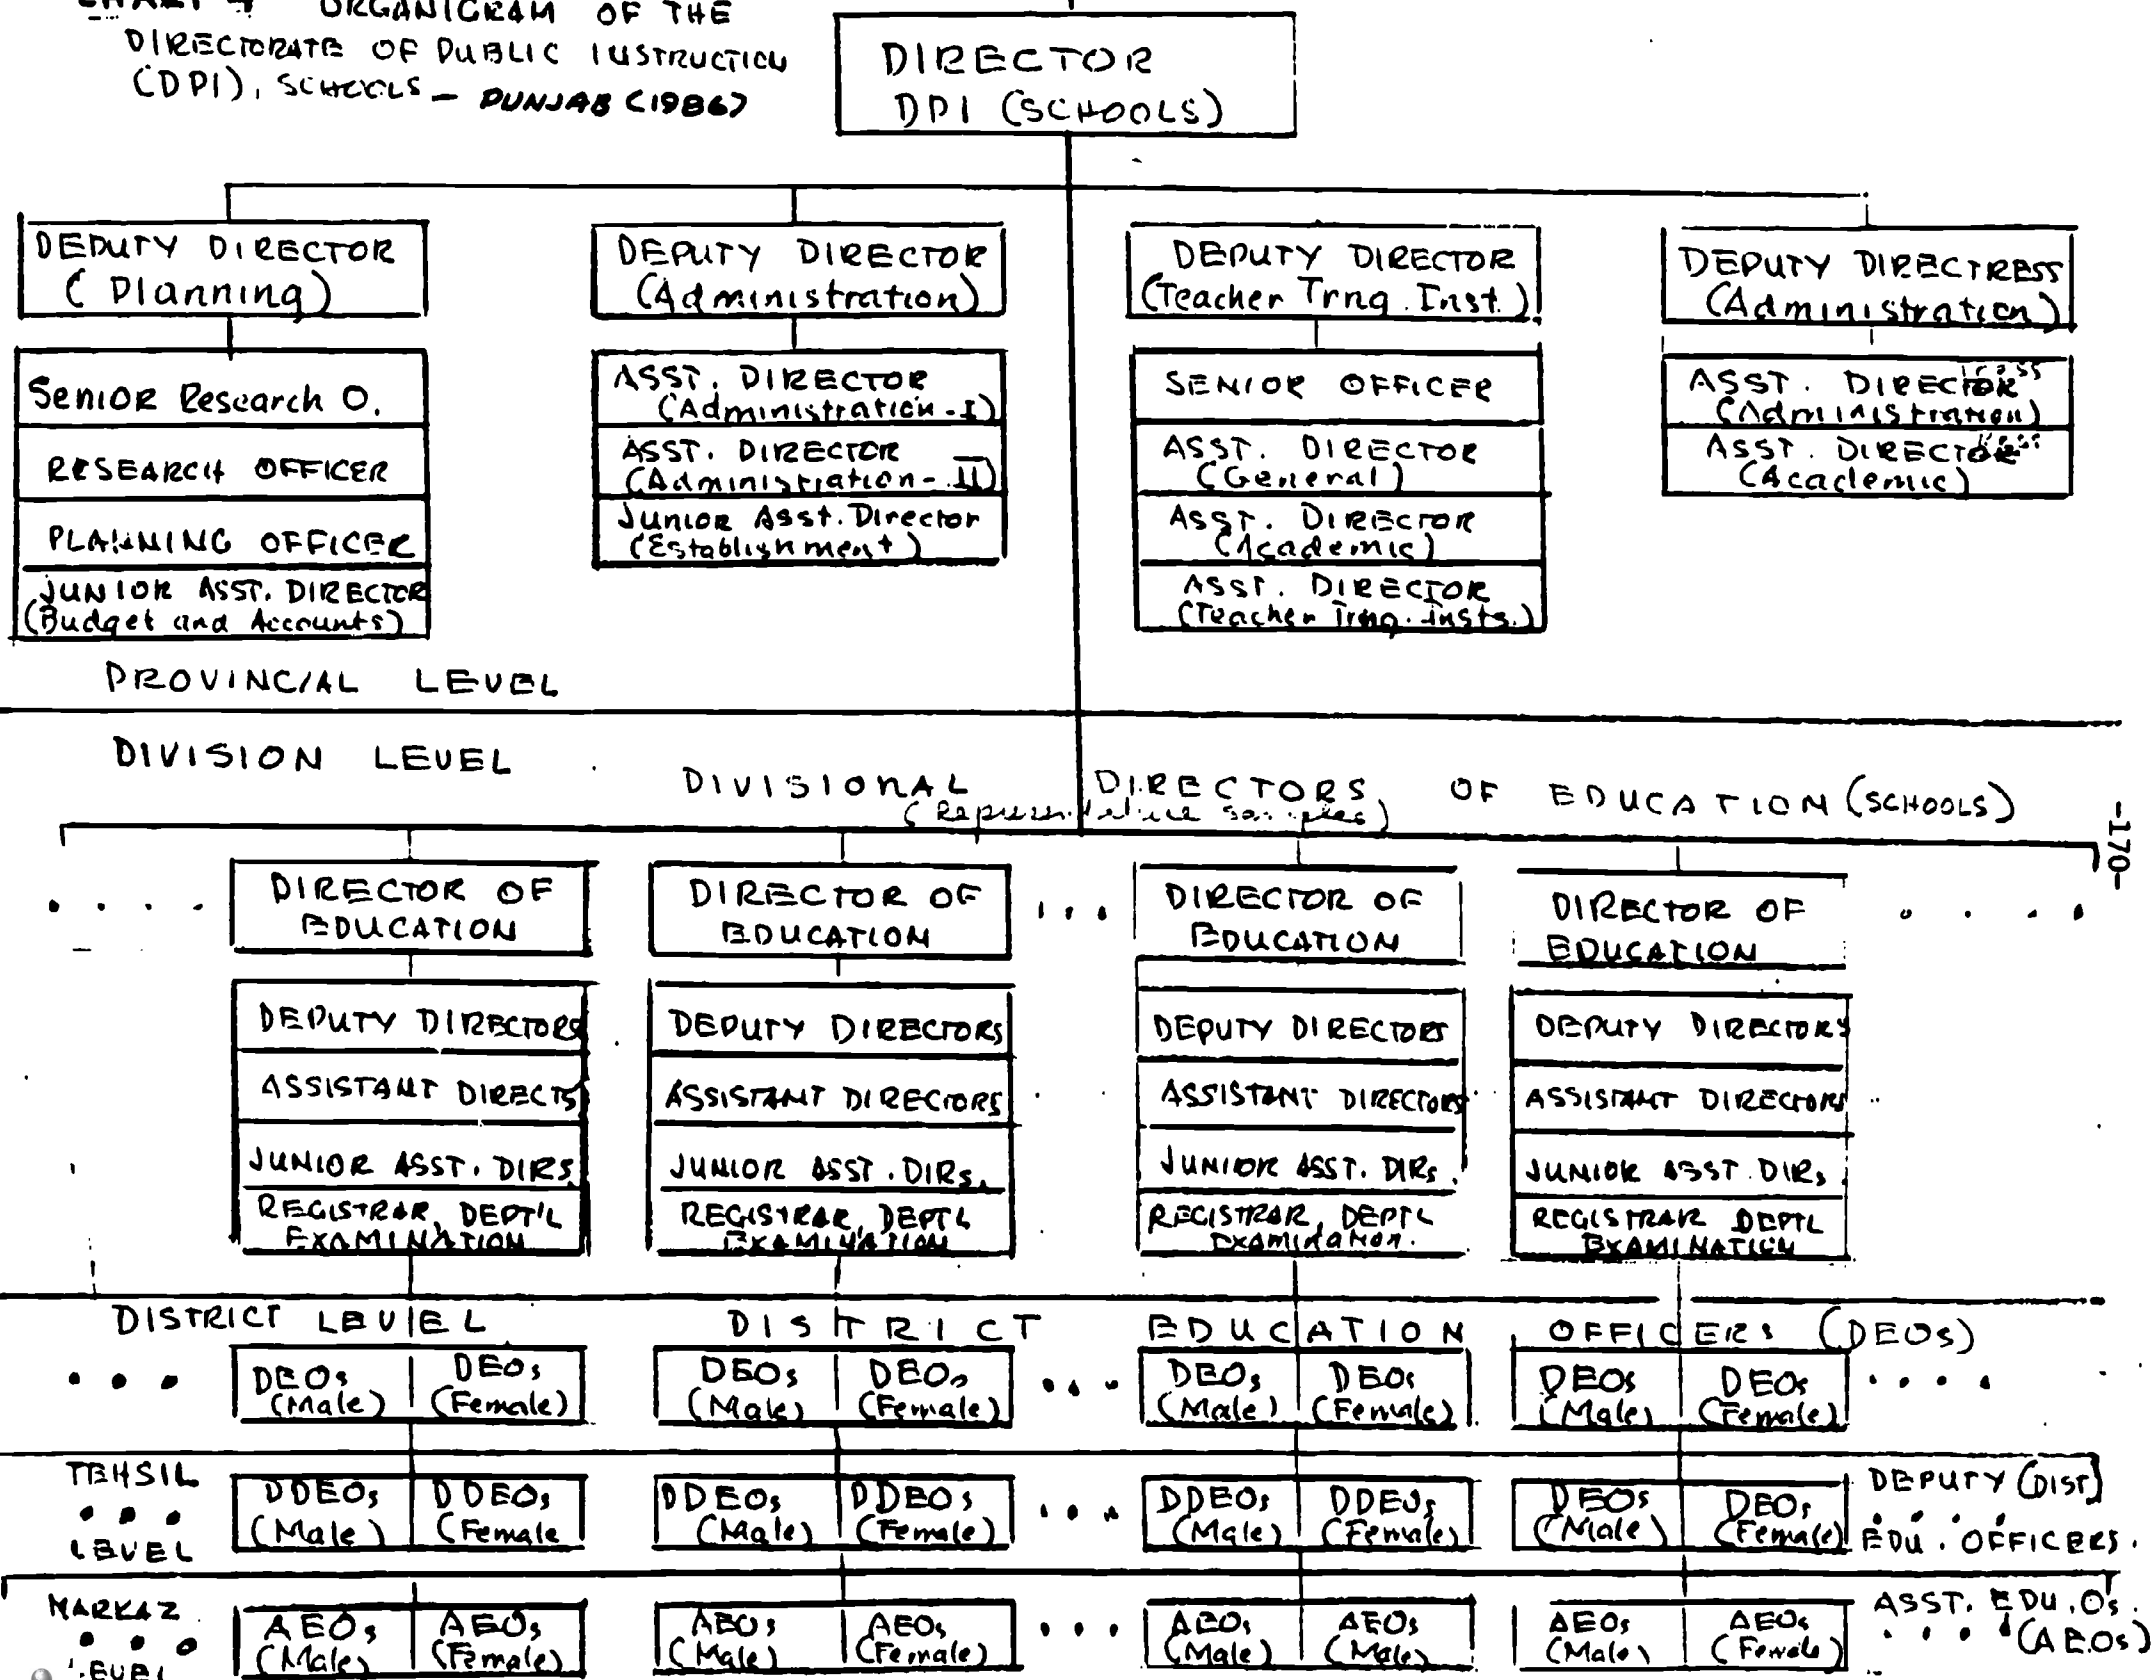 CHART 4 ORGANIGRAM OF THE
DIRECTORATE OF PUBLIC INSTRUCTION
(DPI), SCHOOLS - PUNJAB (1986)
DIRECTOR
DPI (SCHOOLS)
DEPUTY DIRECTOR
(Planning)
Senior Research O.
RESEARCH OFFICER
PLANNING OFFICER
JUNIOR ASST. DIRECTOR
(Budget and Accounts)
DEPUTY DIRECTOR
(Administration)
ASST. DIRECTOR
(Administration-I)
ASST. DIRECTOR
(Administration-II)
Junior Asst. Director
(Establishment)
DEPUTY DIRECTOR
(Teacher Trng. Inst.)
SENIOR OFFICER
ASST. DIRECTOR
(General)
ASST. DIRECTOR
(Academic)
ASST. DIRECTOR
(Teacher Trng. insts.)
DEPUTY DIRECTRESS
(Administration)
ASST. DIRECTRESS
(Administration)
ASST. DIRECTRESS
(Academic)
PROVINCIAL LEVEL
DIVISION LEVEL
DIVISIONAL DIRECTORS OF EDUCATION (SCHOOLS)
(Representative samples)
-170-
DIRECTOR OF
EDUCATION
DEPUTY DIRECTORS
ASSISTANT DIRECTS
JUNIOR ASST. DIRS.
REGISTRAR, DEPT'L
EXAMINATION
DIRECTOR OF
EDUCATION
DEPUTY DIRECTORS
ASSISTANT DIRECTORS
JUNIOR ASST. DIRS.
REGISTRAR, DEPTL
EXAMINATION
DIRECTOR OF
EDUCATION
DEPUTY DIRECTORS
ASSISTANT DIRECTORS
JUNIOR ASST. DIRS.
REGISTRAR, DEPTL
Examination.
DIRECTOR OF
EDUCATION
DEPUTY DIRECTORS
ASSISTANT DIRECTORS
JUNIOR ASST. DIRS.
REGISTRAR DEPTL
EXAMINATION
DISTRICT LEVEL DISTRICT EDUCATION OFFICERS (DEOs)
DEOs
(Male)
DEOs
(Female)
DEOs
(Male)
DEOs
(Female)
DEOs
(Male)
DEOs
(Female)
DEOs
(Male)
DEOs
(Female)
TEHSIL
LEVEL
DDEOs
(Male)
DDEOs
(Female
DDEOs
(Male)
DDEOs
(Female)
DDEOs
(Male)
DDEOs
(Female)
DEOs
(Male)
DEOs
(Female)
DEPUTY (DIST)
EDU. OFFICERS.
MARKAZ
LEVEL
AEOs
(Male)
AEOs
(Female)
AEOs
(Male)
AEOs
(Female)
AEOs
(Male)
AEOs
(Male)
AEOs
(Male)
AEOs
(Female)
ASST. EDU. O's.
(AEOs)